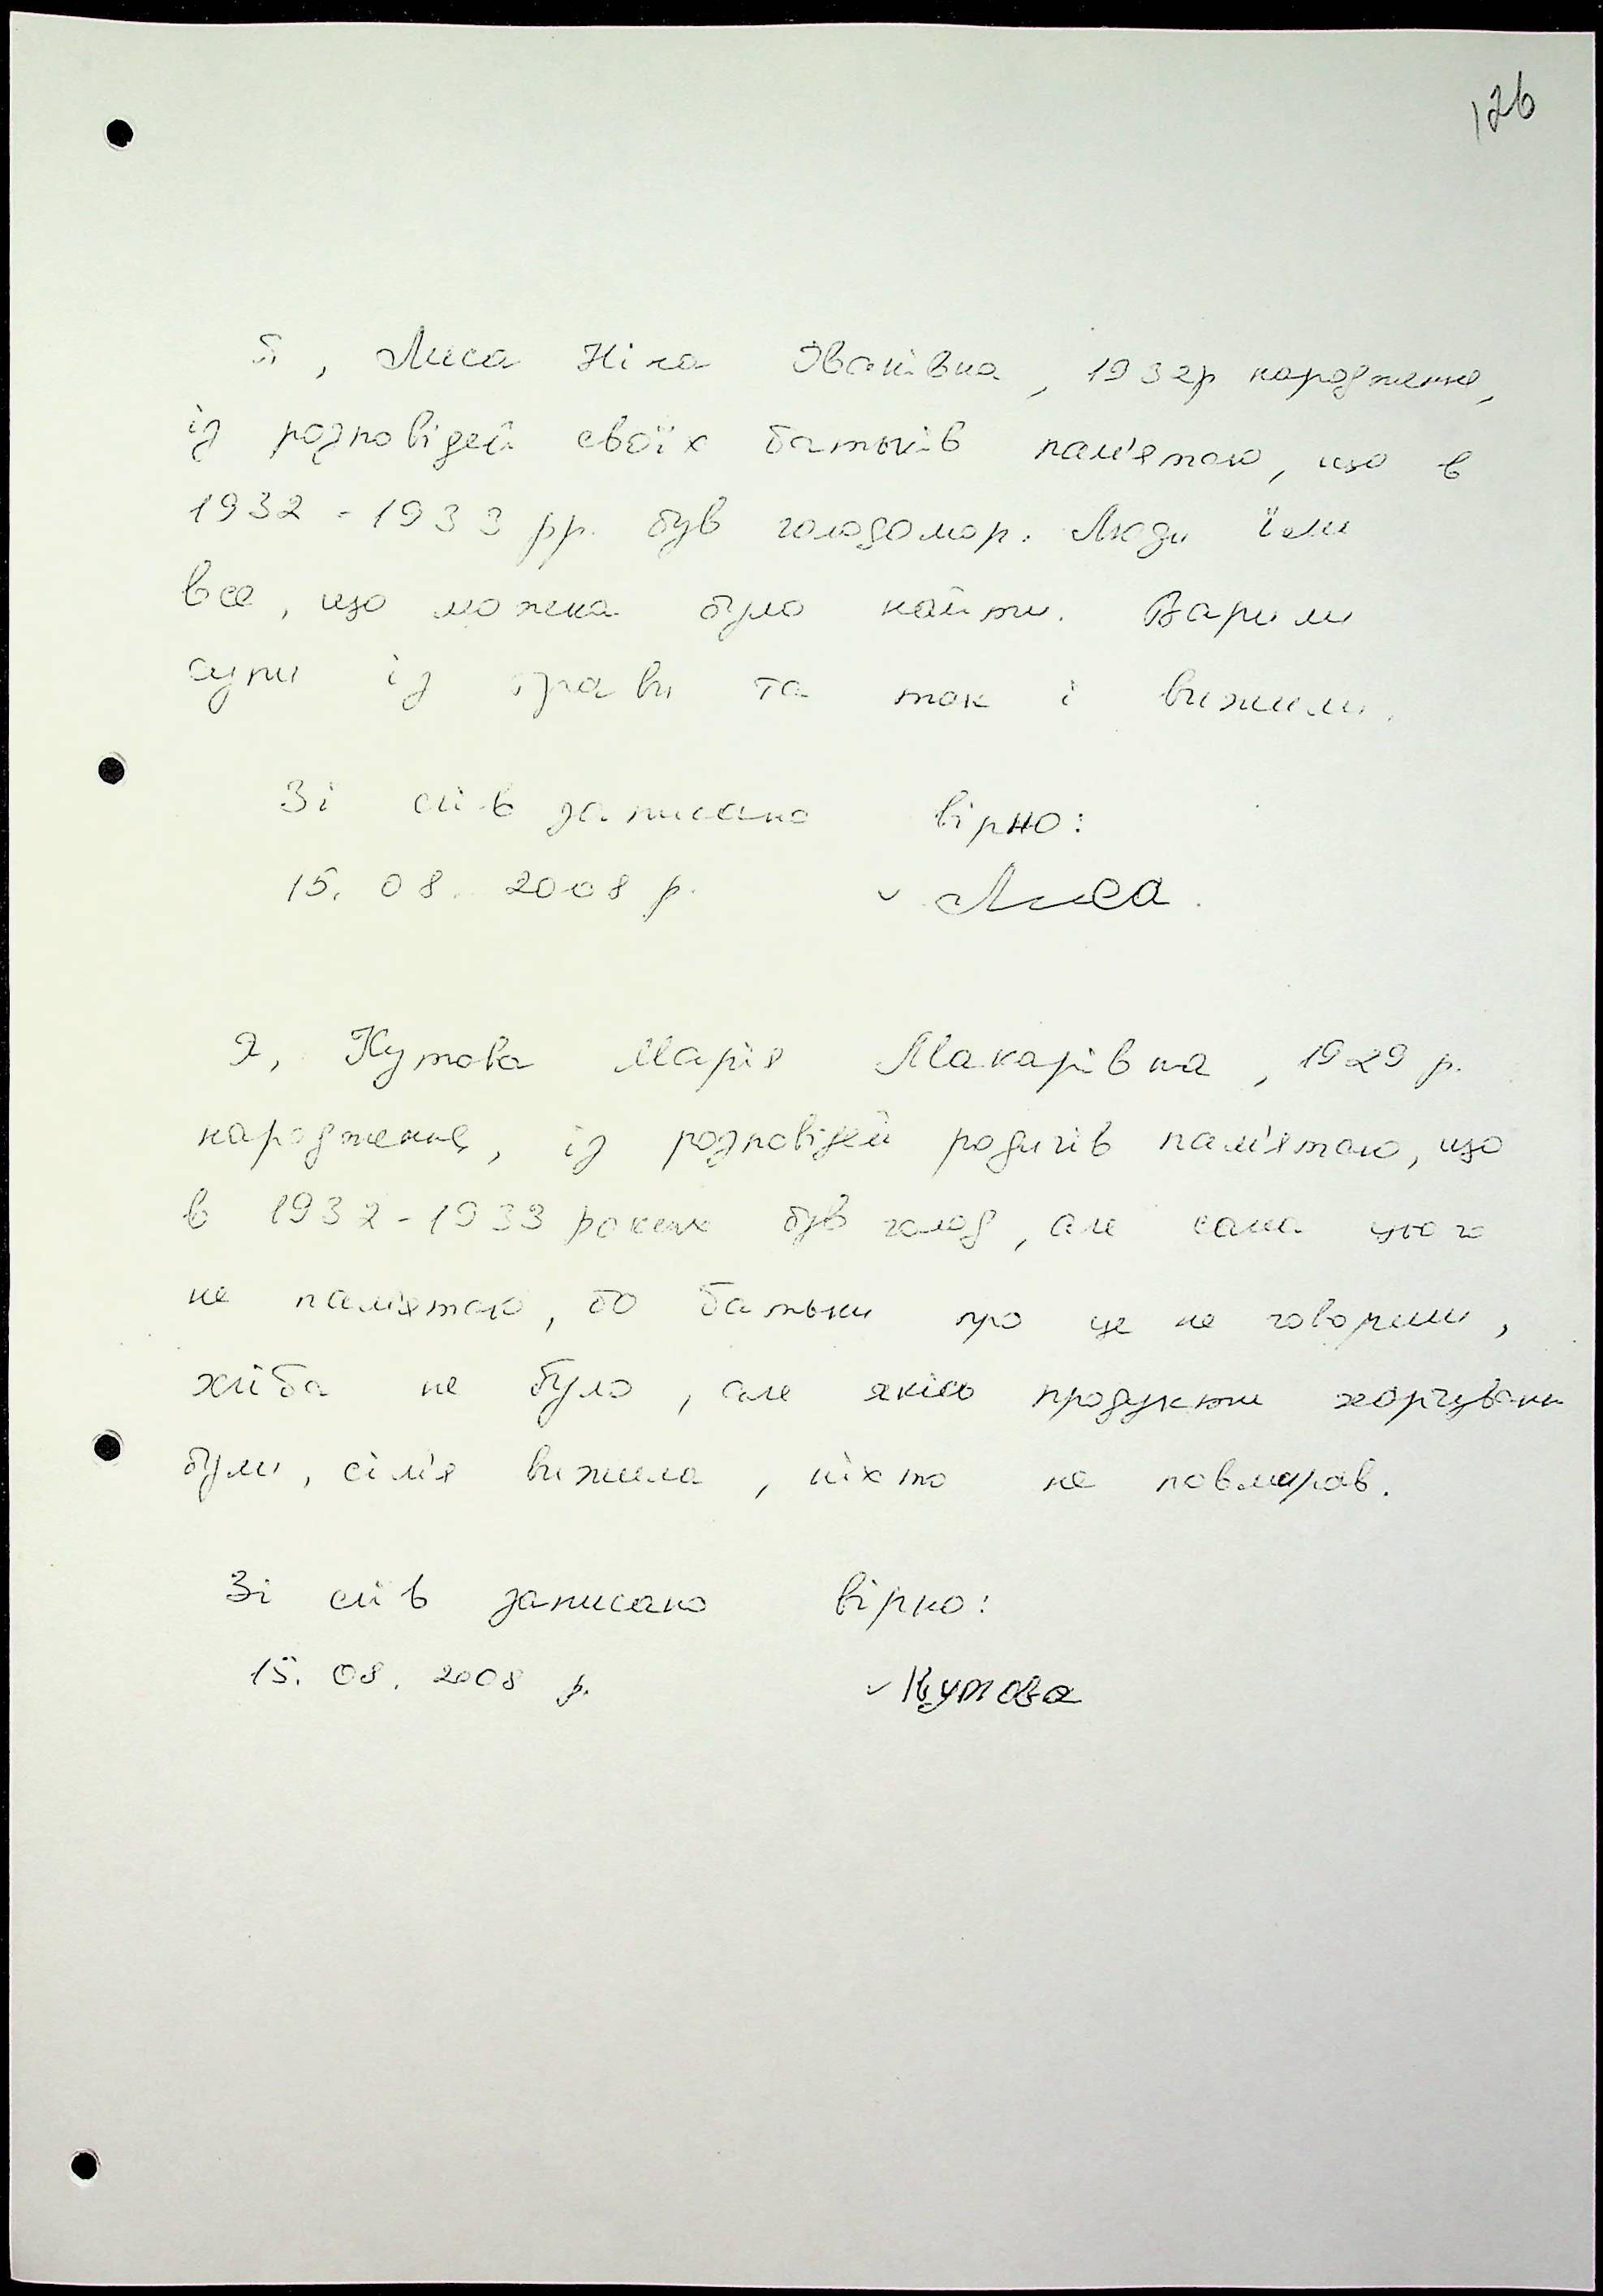 126
Я, Лиса Ніна Іванівна, 1932р народження,
із розповідей своїх батьків пам'ятаю, що в
1932-1933 рр. був голодомор. Люди їли
все, що можна було найти. Варили
супи із трави та так і вижили.
Зі слів записано вірно:
15. 08. 2008 р. ✓ Лиса.
Я, Кутова Марія Макарівна, 1929 р.
народження, із розповідей родичів пам'ятаю, що
в 1932-1933 роках був голод, але сама цього
не пам'ятаю, бо батьки про це не говорили,
хліба не було, але якісь продукти харчування
були, сім'я вижила, ніхто не повмирав.
Зі слів записано вірно:
15. 08. 2008 р. ✓ Кутова